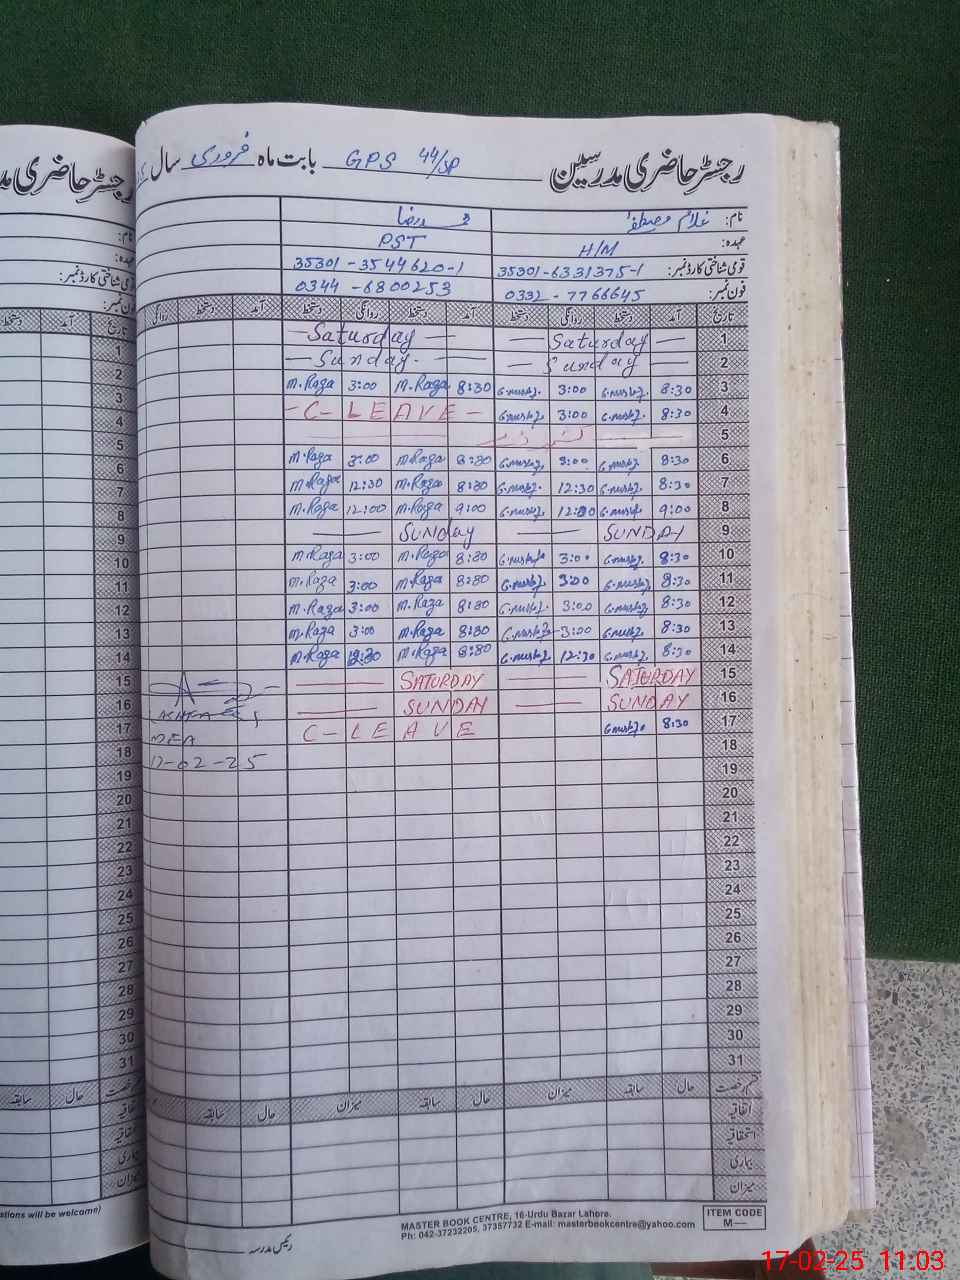 رجسٹر حاضری مدرسین GPS 44/SP بابت ماہ فروری سال
نام: غلام مصطفیٰ
عہدہ: H/M PST
قومی شناختی کارڈ نمبر: 35301-6331375-1 35301-3544620-1
فون نمبر: 0332-7766645 0344-6800253
تاریخ آمد دستخط روانگی دستخط آمد دستخط روانگی دستخط آمد دستخط روانگی
1 Saturday Saturday
2 Sunday Sunday
3 8:30 G.mustf. 3:00 G.mustf. 8:30 M.Raza 3:00 M.Raza
4 8:30 G.mustf. 3:00 G.mustf. C-LEAVE
5
6 8:30 G.mustf. 3:00 G.mustf. 8:30 M.Raza 3:00 M.Raza
7 8:30 G.mustf. 12:30 G.mustf. 8:30 M.Raza 12:30 M.Raza
8 9:00 G.mustf. 12:00 G.mustf. 9:00 M.Raza 12:00 M.Raza
9 SUNDAY SUNday
10 8:30 G.mustf. 3:00 G.mustf. 8:30 M.Raza 3:00 M.Raza
11 8:30 G.mustf. 3:00 G.mustf. 8:30 M.Raza 3:00 M.Raza
12 8:30 G.mustf. 3:00 G.mustf. 8:30 M.Raza 3:00 M.Raza
13 8:30 G.mustf. 3:00 G.mustf. 8:30 M.Raza 3:00 M.Raza
14 8:30 G.mustf. 12:30 G.mustf. 8:30 M.Raza 12:30 M.Raza
15 SATURDAY SATURDAY
16 SUNDAY SUNDAY
17 8:30 G.mustf. C-LEAVE MEA
18 17-02-25
19
20
21
22
23
24
25
26
27
28
29
30
31
قسم رخصت حال سابقہ میزان حال سابقہ میزان حال سابقہ
اتفاقیہ
استحقاقیہ
بیماری
میزان
رئیس مدرسہ
MASTER BOOK CENTRE, 16-Urdu Bazar Lahore.
Ph: 042-37232205, 37357732 E-mail: masterbookcentre@yahoo.com
ITEM CODE
M—
رجسٹر حاضری مد
نام:
عہدہ:
قومی شناختی کارڈ نمبر:
فون نمبر:
تاریخ آمد دستخط
1
2
3
4
5
6
7
8
9
10
11
12
13
14
15
16
17
18
19
20
21
22
23
24
25
26
27
28
29
30
31
حال سابقہ
اتفاقیہ
بیماری
میزان
stions will be welcome)
17-02-25 11:03